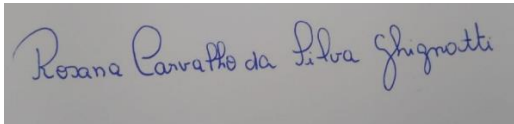 Rosana Carvalho da Silva Ghignatti